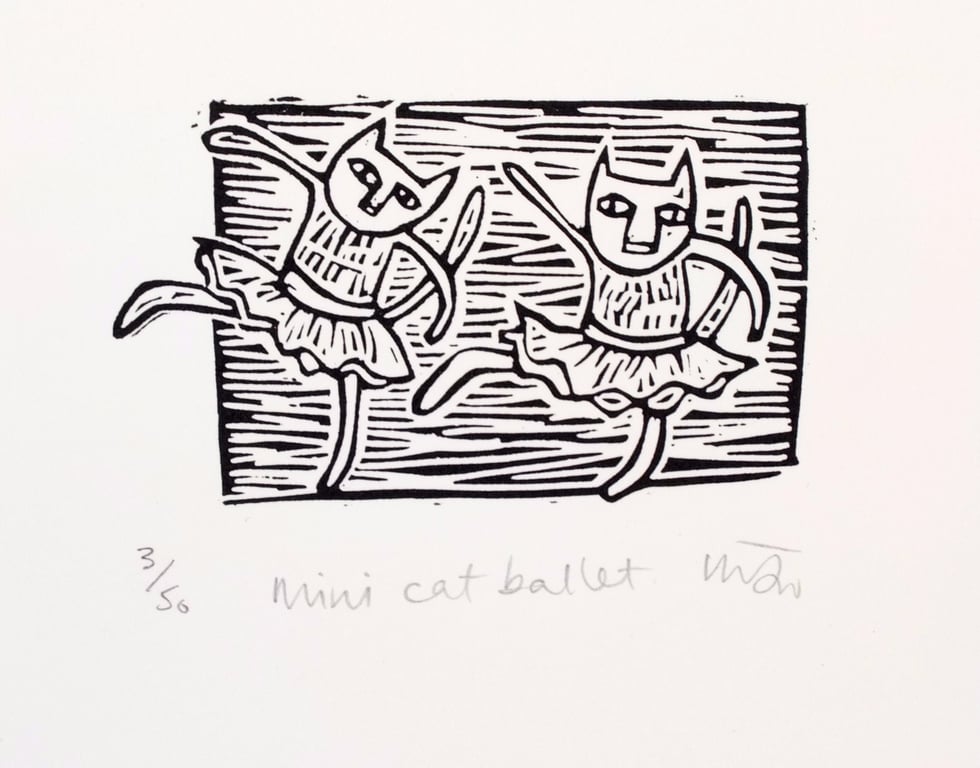 3/50 mini cat ballet